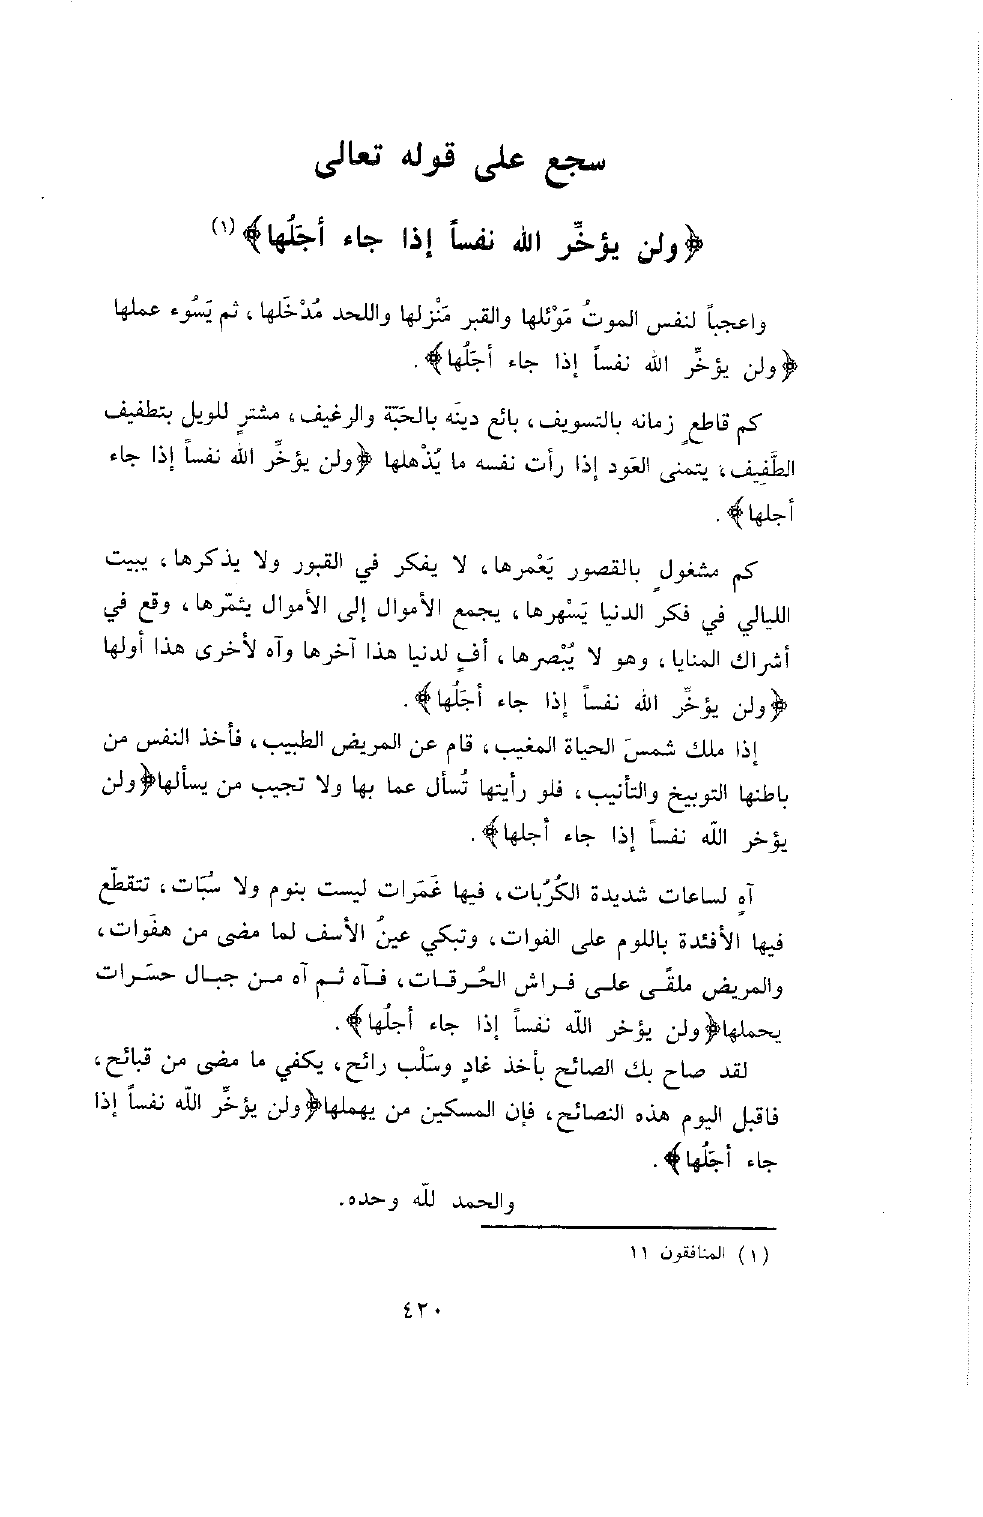 سجع على قوله تعالى
﴿ولن يؤخِّر الله نفساً إذا جاء أجَلُها﴾(١)
واعجباً لنفس الموتُ مَوْئلها والقبر مَنْزلها واللحد مُدْخَلها، ثم يَسُوء عملها
﴿ولن يؤخِّر الله نفساً إذا جاء أجَلُها﴾.
كم قاطعٍ زمانه بالتسويف، بائع دينَه بالحَبّة والرغيف، مشترٍ للويل بتطفيف
الطَّفِيف، يتمنى العَود إذا رأت نفسه ما يُذْهلها ﴿ولن يؤخِّر الله نفساً إذا جاء
أجلها﴾.
كم مشغولٍ بالقصور يَعْمرها، لا يفكر في القبور ولا يذكرها، يبيت
الليالي في فكر الدنيا يَسْهرها، يجمع الأموال إلى الأموال يثمّرها، وقع في
أشراك المنايا، وهو لا يُبْصرها، أفٍ لدنيا هذا آخرها وآه لأخرى هذا أولها
﴿ولن يؤخِّر الله نفساً إذا جاء أجَلُها﴾.
إذا ملك شمسَ الحياة المغيب، قام عن المريض الطبيب، فأخذ النفس من
باطنها التوبيخ والتأنيب، فلو رأيتها تُسأل عما بها ولا تجيب من يسألها﴿ولن
يؤخر اللّه نفساً إذا جاء أجلها﴾.
آهٍ لساعات شديدة الكُرُبات، فيها غَمَرات ليست بنوم ولا سُبَات، تتقطّع
فيها الأفئدة باللوم على الفوات، وتبكي عينُ الأسف لما مضى من هفَوات،
والمريض ملقًى على فراش الحُرقات، فآه ثم آه من جبال حسَرات
يحملها﴿ولن يؤخر اللّه نفساً إذا جاء أجلُها﴾.
لقد صاح بك الصائح بأخذ غادٍ وسَلْب رائح، يكفي ما مضى من قبائح،
فاقبل اليوم هذه النصائح، فإن المسكين من يهملها﴿ولن يؤخِّر اللّه نفساً إذا
جاء أجَلُها﴾.
والحمد للّه وحده.
(١) المنافقون ١١
٤٢٠